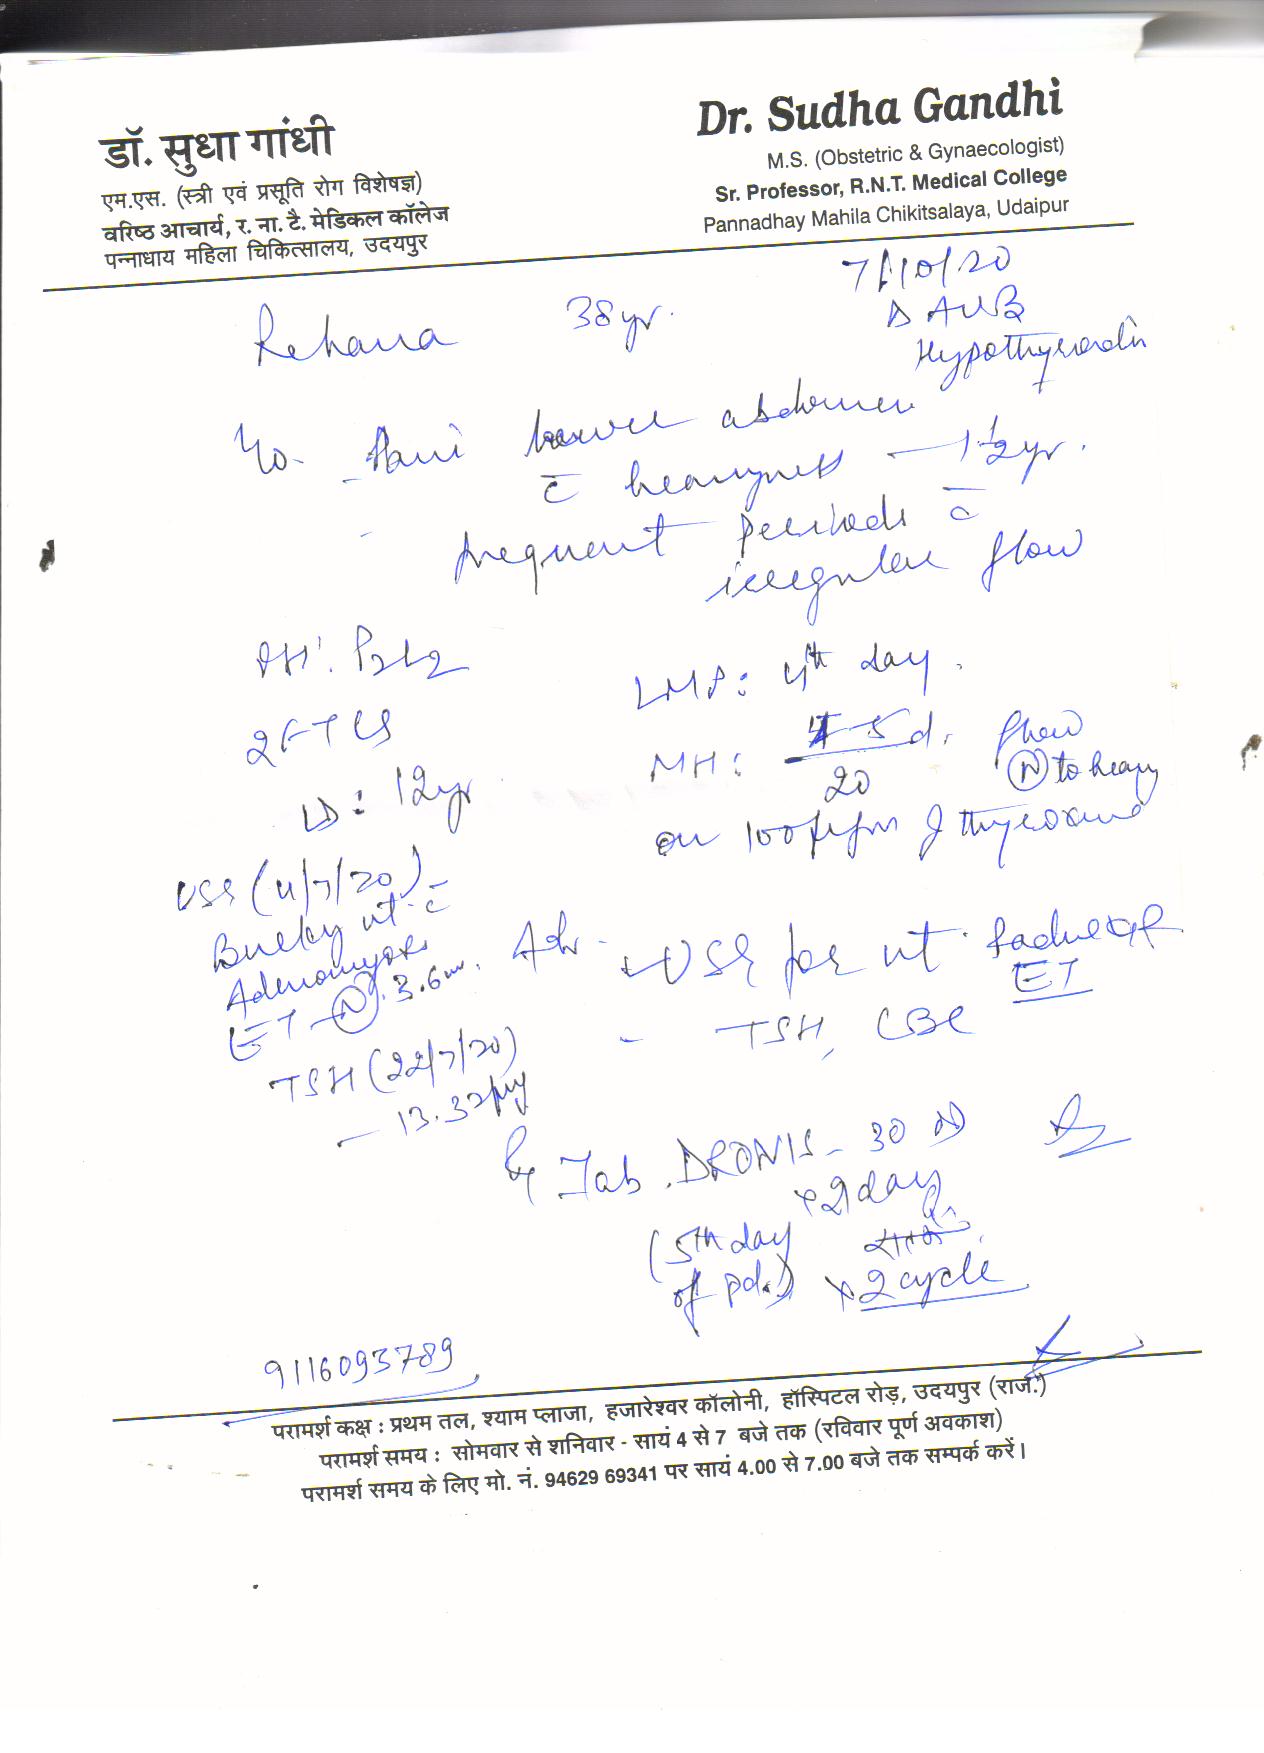 डॉ. सुधा गांधी
एम.एस. (स्त्री एवं प्रसूति रोग विशेषज्ञ)
वरिष्ठ आचार्य, र. ना. टै. मेडिकल कॉलेज
पन्नाधाय महिला चिकित्सालय, उदयपुर
Dr. Sudha Gandhi
M.S. (Obstetric & Gynaecologist)
Sr. Professor, R.N.T. Medical College
Pannadhay Mahila Chikitsalaya, Udaipur
7/10/20
Rehana 38yr.
Δ AUB
Hypothyroidin
- Pain lower abdomen
c̄ heavyness - 1½yr.
- frequent periods c̄
irregular flow
OH: P2L2
2FTCS
LD: 12yr
LMP: 4th day.
MH: 4-5d. flow
20 (N) to heavy
on 100 of thyroxine
USG (4/7/20)
Bulky ut. c̄
Adenomyosis
ET - (N). 3.6
TSH (22/7/20)
- 13.32
Adv - USG for ut
ET
- TSH, CBC
Tab. DRONIS - 30
x 21 day
(5th day
of pd.) x 2 cycle
9116093789
परामर्श कक्ष : प्रथम तल, श्याम प्लाजा, हजारेश्वर कॉलोनी, हॉस्पिटल रोड़, उदयपुर (राज.)
परामर्श समय : सोमवार से शनिवार - सायं 4 से 7 बजे तक (रविवार पूर्ण अवकाश)
परामर्श समय के लिए मो. नं. 94629 69341 पर सायं 4.00 से 7.00 बजे तक सम्पर्क करें।